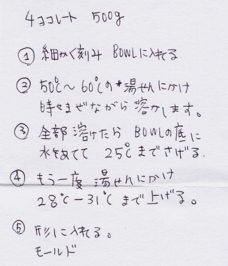 4ョコレート 500g
① 細かく刻み BOWLに入れる
② 50℃〜60℃の湯せんにかけ
時々まぜながら溶かします。
③ 全部溶けたら BOWLの底に
水をあてて 25℃まで下げる.
④ もう一度 湯せんにかけ
28℃-31℃まで上げる。
⑤ 形に入れる。
モールド